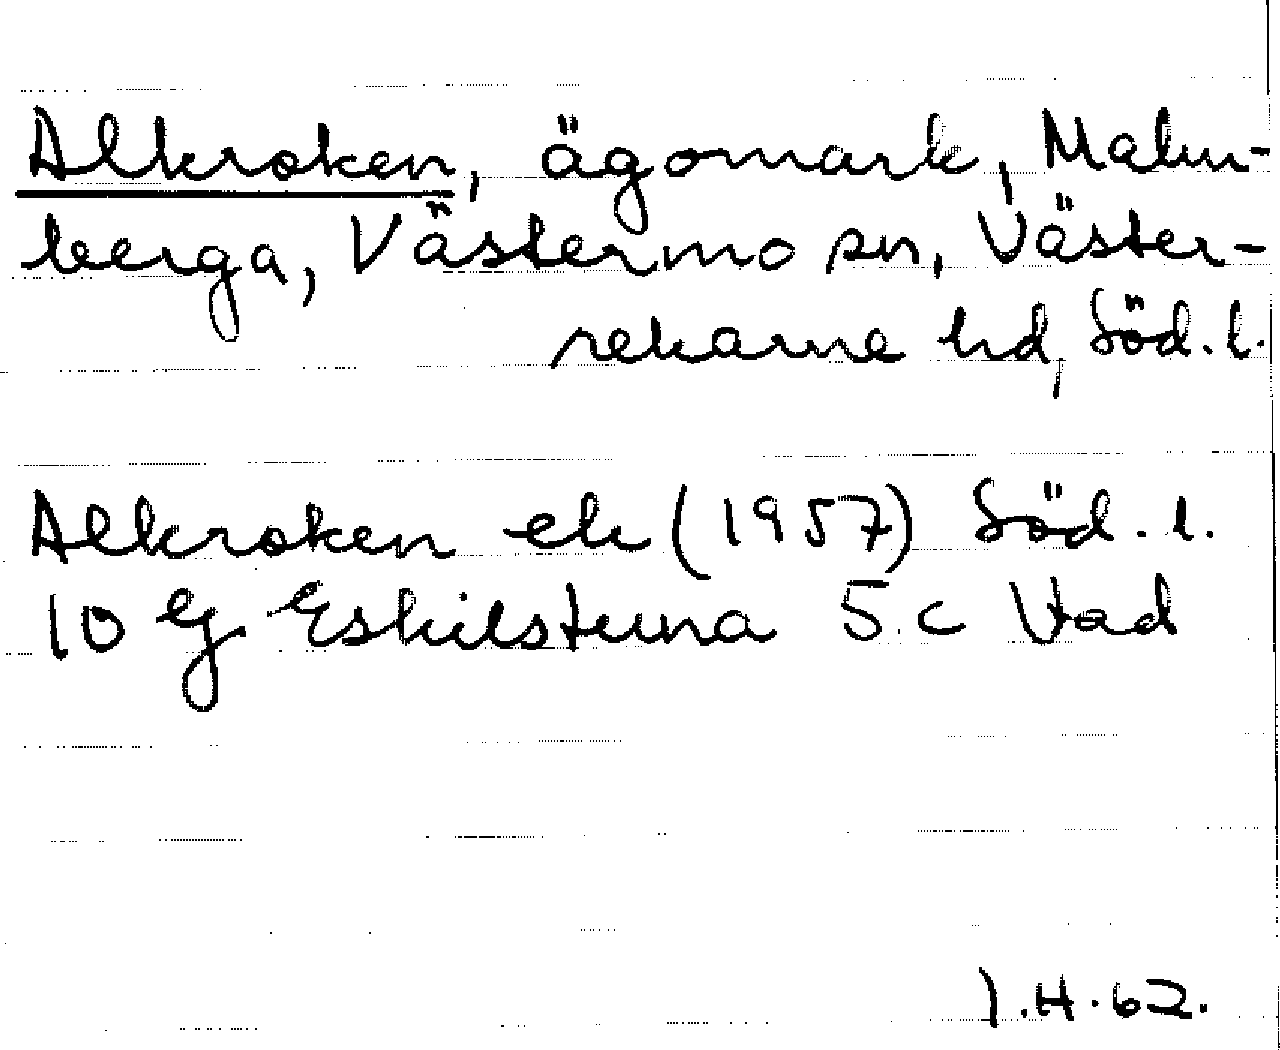 Alkroken, ägomark, Malm-
berga, Västermo sn, Väster-
rekarne hd, Söd. l.
Alkroken ek (1957) Söd. l.
10 Gg Eskilstuna 5 c Vad
J.H. 62.